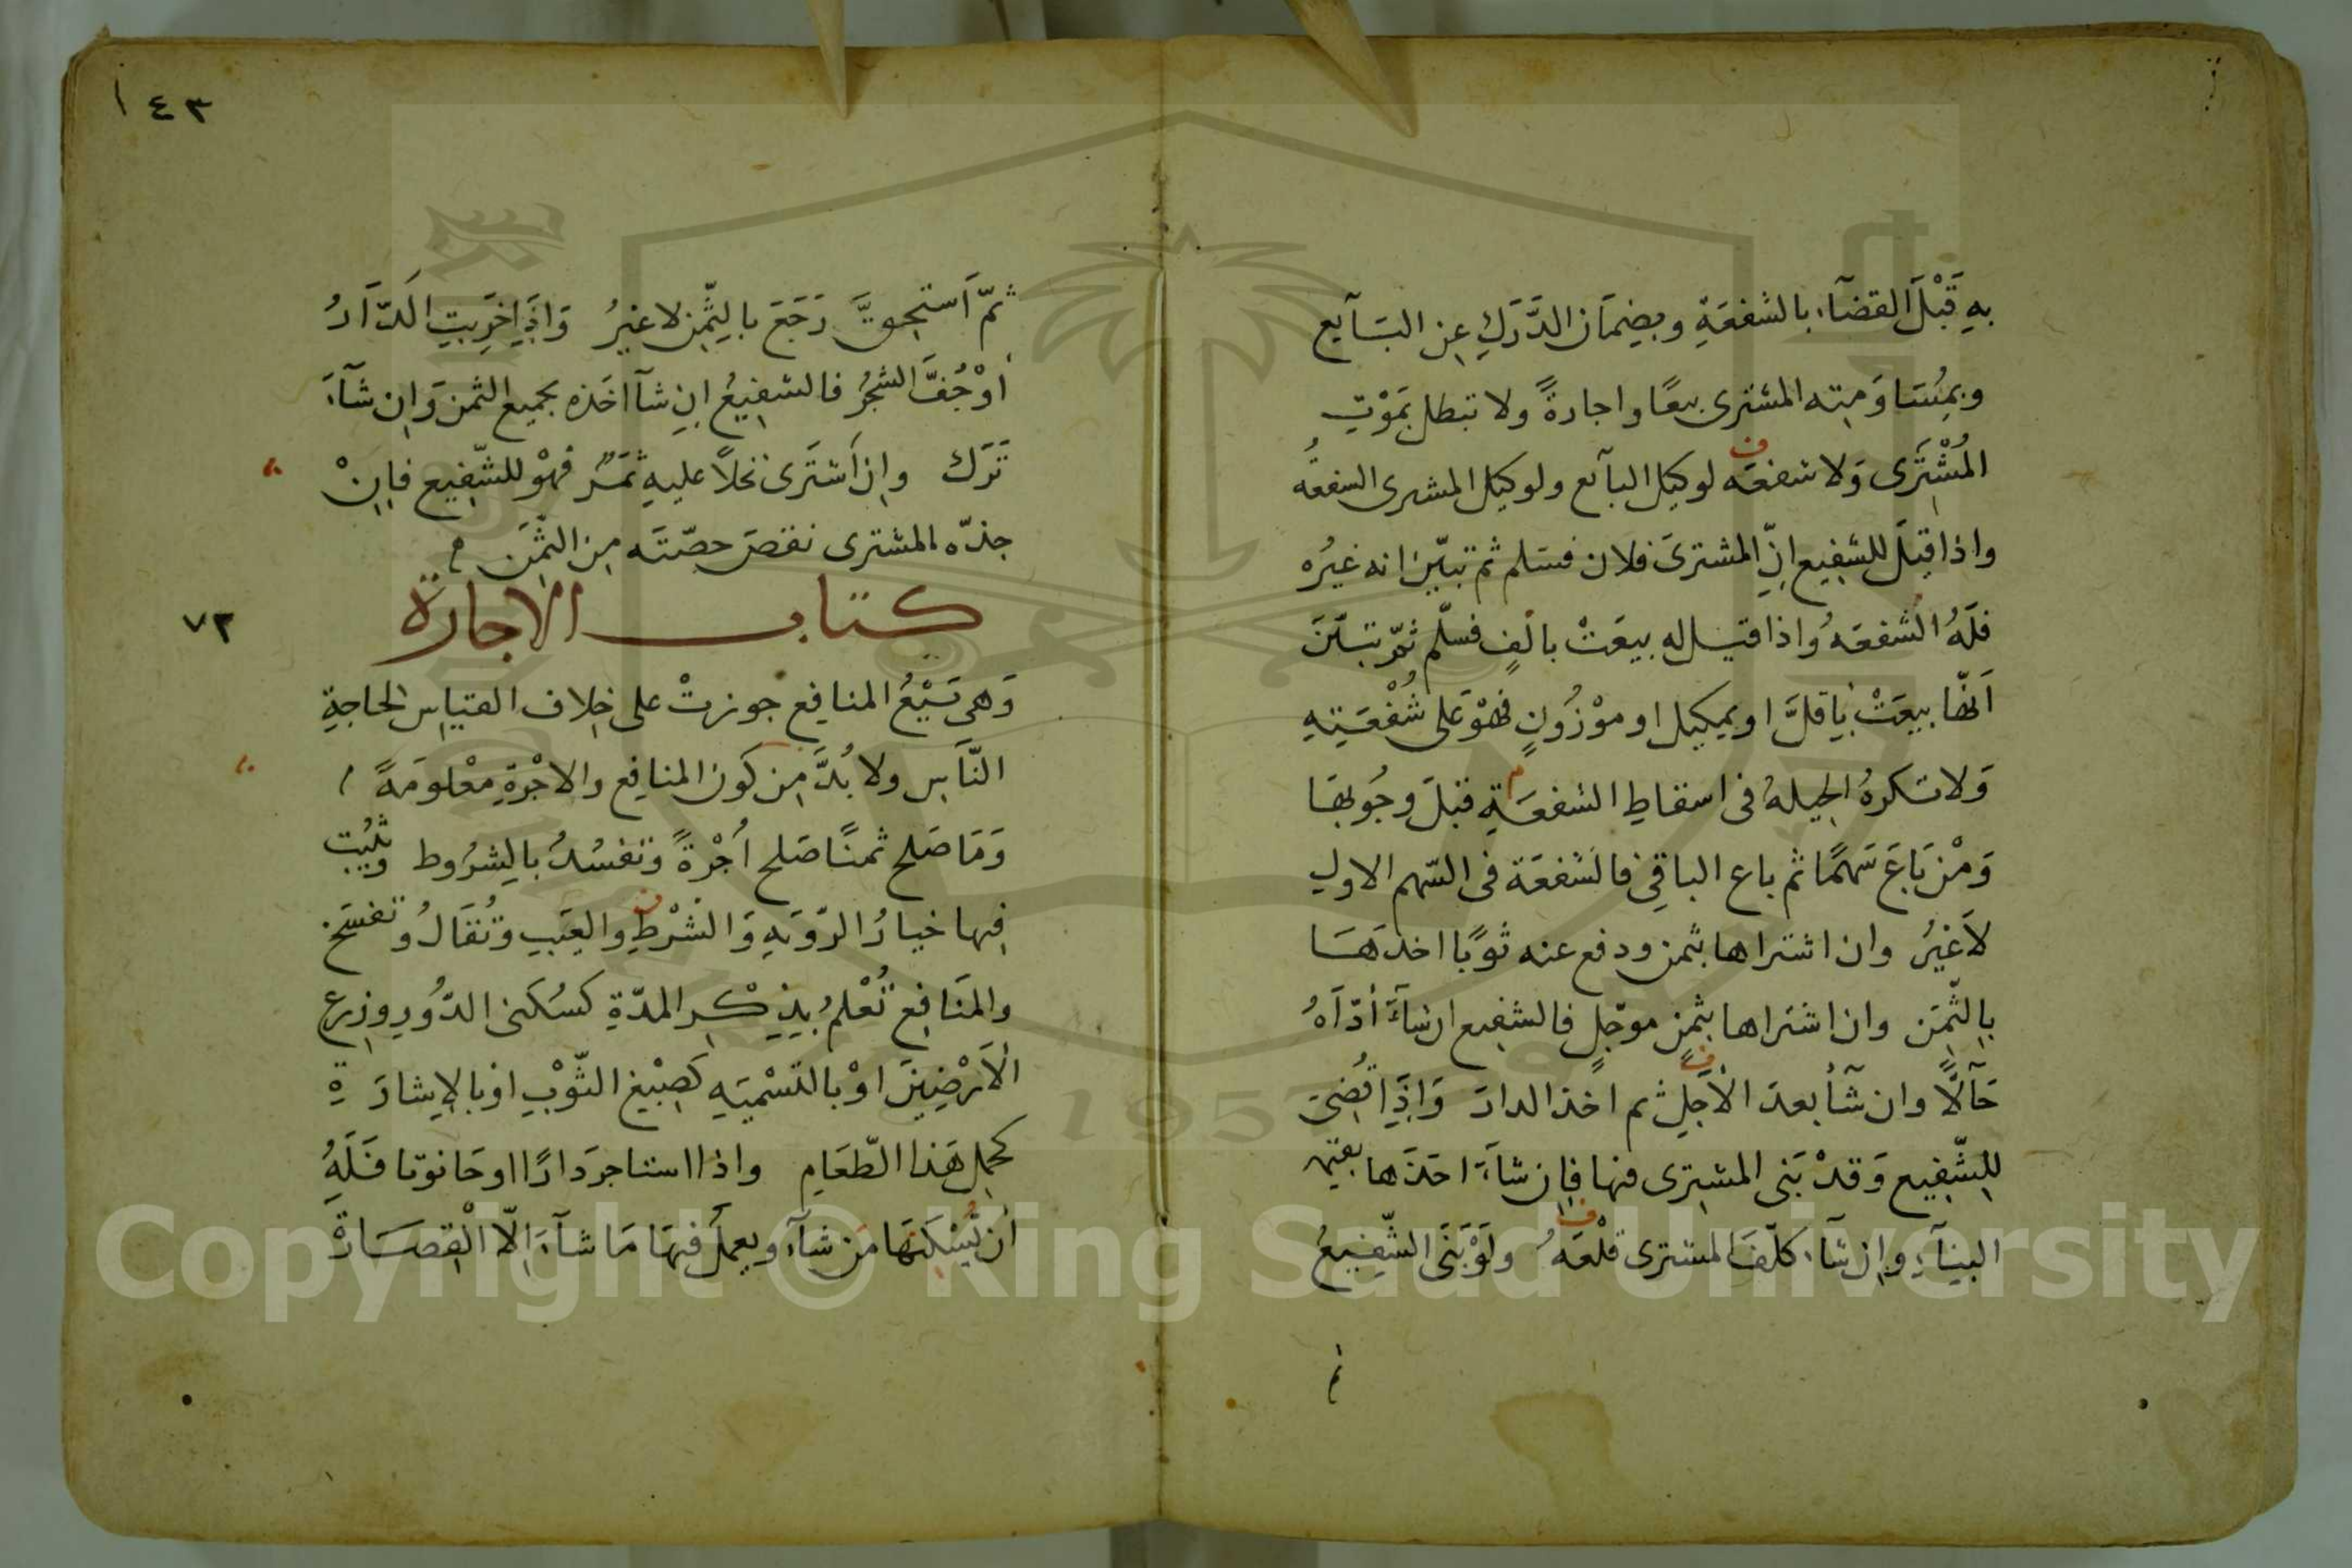 به قَبْلَ القضآء بالشفعَةِ وبضمَان الدَّرَكِ عن البَآيع
وبمُسَاوَمته المشترى بيعًا واجارةً ولا تبطل بمَوْتِ
المُشْتَرى وَلا شفعَه لوكيل البآيع ولوكيل المشترى الشفعهُ
واذا قيلَ للشفِيع انّ المشترىَ فلان فسَلم ثم تبيّن انه غيرُه
فلَهُ الشفعَهُ واذا قيل له بيعَتْ بالفٍ فسلّم ثمّ تبيّنَ
اَنّها بيعَتْ بِاقلَّ او بمكيل او موْزُونٍ فهْوَ على شُفْعَتِهِ
وَلا تكرهُ الحِيلهُ فى اسقاطِ الشفعَةِ قبلَ وجُوبهَا
وَمْن بَاعَ سَهمًا ثم باع الباقِى فالشفعَة فى السّهم الاولِ
لاَغيرُ وان اشتراها بثمن ودفع عنه ثوبًا اخذهَا
بالثّمَن وان اشتراها بثمنٍ موجّلٍ فالشفيع ان شآءَ أدّاهُ
حَآلًّا وان شآ بعدَ الأجَلِ ثم اخذ الدارَ وَاذَا قُضىَ
للشّفِيع وَقدْ بَنى المشترى فيها فان شآءَ اخذَها بقيمة
البنآءِ وان شآء كلّفَ المشترى قلْعَهُ ولَوْ بَنَى الشّفِيعُ
١٤٣
ثمّ اَستحِقتَّ رَجَعَ بالثّمن لا غيرُ وَاذَا خَرِبتِ الدَّارُ
أوْ جُفَّ الشجرُ فالشفِيعُ ان شآ اخَذه بجميع الثمن وَان شَآءَ
تَرَك وان اَشتَرى نخلاً عليهِ ثمَرٌ فهْوَ للشّفِيع فاِنْ
جذّه المشترى نقصَ حصّتَه من الثّمَن
كتاب الاجارة
٧٢
وَهى بَيْعُ المنافِع جوزتْ على خِلاف القياسِ لحاجةِ
النّاسِ ولا بُدَّ من كَون المنافِع والاجْرةِ معْلومَةً
وَمَا صَلح ثمنًا صَلح اُجْرةً وَتفسُدُ بالشرُوط وَيثبُت
فيها خيارُ الرّؤيَهِ وَالشرْطِ والعَيبِ وَتُقَالُ وَتفسَخ
والمَنَافِع تُعْلمُ بذِكْرِ المدّةِ كسُكنى الدّوُرِ وزرعِ
الأرْضِينَ اوْ بالتسْميَهِ كصِبْغِ الثّوْبِ او بالإشارَةِ
كحمل هَذا الطّعَامِ واذا استاجرَ دارًا او حَانوتا فَلَهُ
أنْ يُسْكنهَا مَن شآءَ ويعملَ فيهَا مَا شآءَ اِلّا الْقصَارَةَ
Copyright © King Saud University
1957